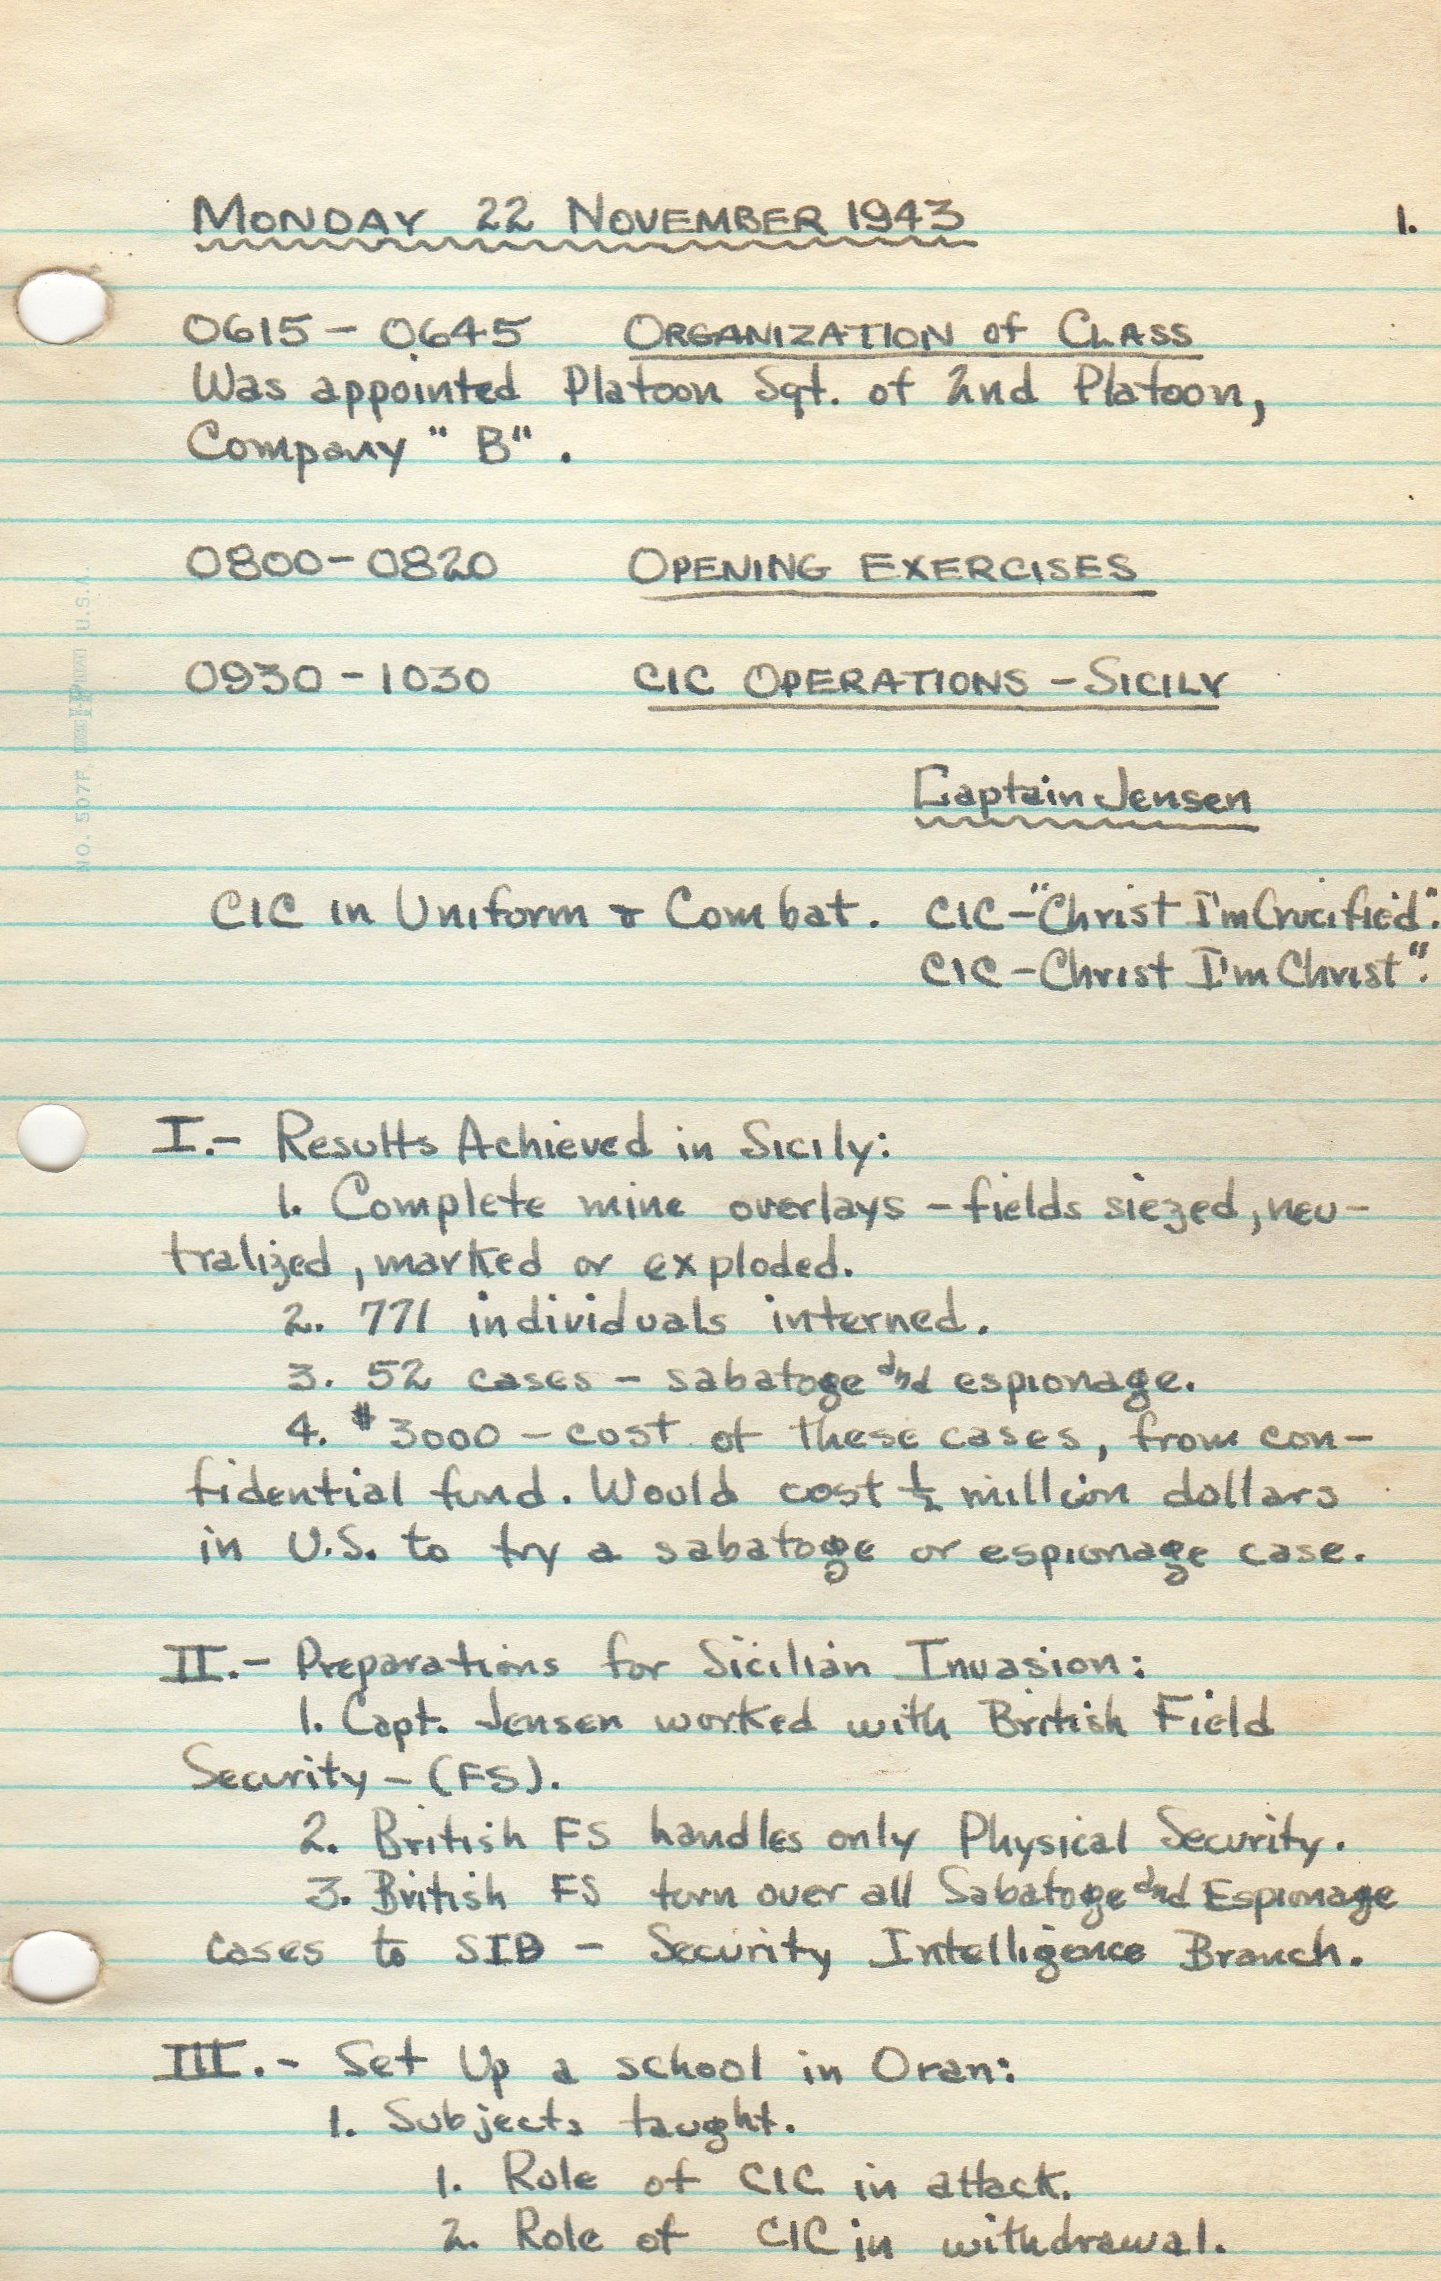 MONDAY 22 NOVEMBER 1943 1.
0615 - 0645 ORGANIZATION of CLASS
Was appointed Platoon Sgt. of 2nd Platoon,
Company "B".
0800-0820 OPENING EXERCISES
0930-1030 CIC OPERATIONS - SICILY
Captain Jensen
CIC in Uniform & Combat. CIC-"Christ I'm Crucified".
CIC-Christ I'm Christ".
I.- Results Achieved in Sicily:
1. Complete mine overlays - fields siezed, neu-
tralized, marked or exploded.
2. 771 individuals interned.
3. 52 cases - sabatoge and espionage.
4. $3000 - cost of these cases, from con-
fidential fund. Would cost ½ million dollars
in U.S. to try a sabatoge or espionage case.
II.- Preparations for Sicilian Invasion:
1. Capt. Jensen worked with British Field
Security - (FS).
2. British FS handles only Physical Security.
3. British FS turn over all Sabatoge and Espionage
cases to SIB - Security Intelligence Branch.
III.- Set Up a school in Oran:
1. Subjects taught.
1. Role of CIC in attack.
2. Role of CIC in withdrawal.
NO. 507F U.S.A.